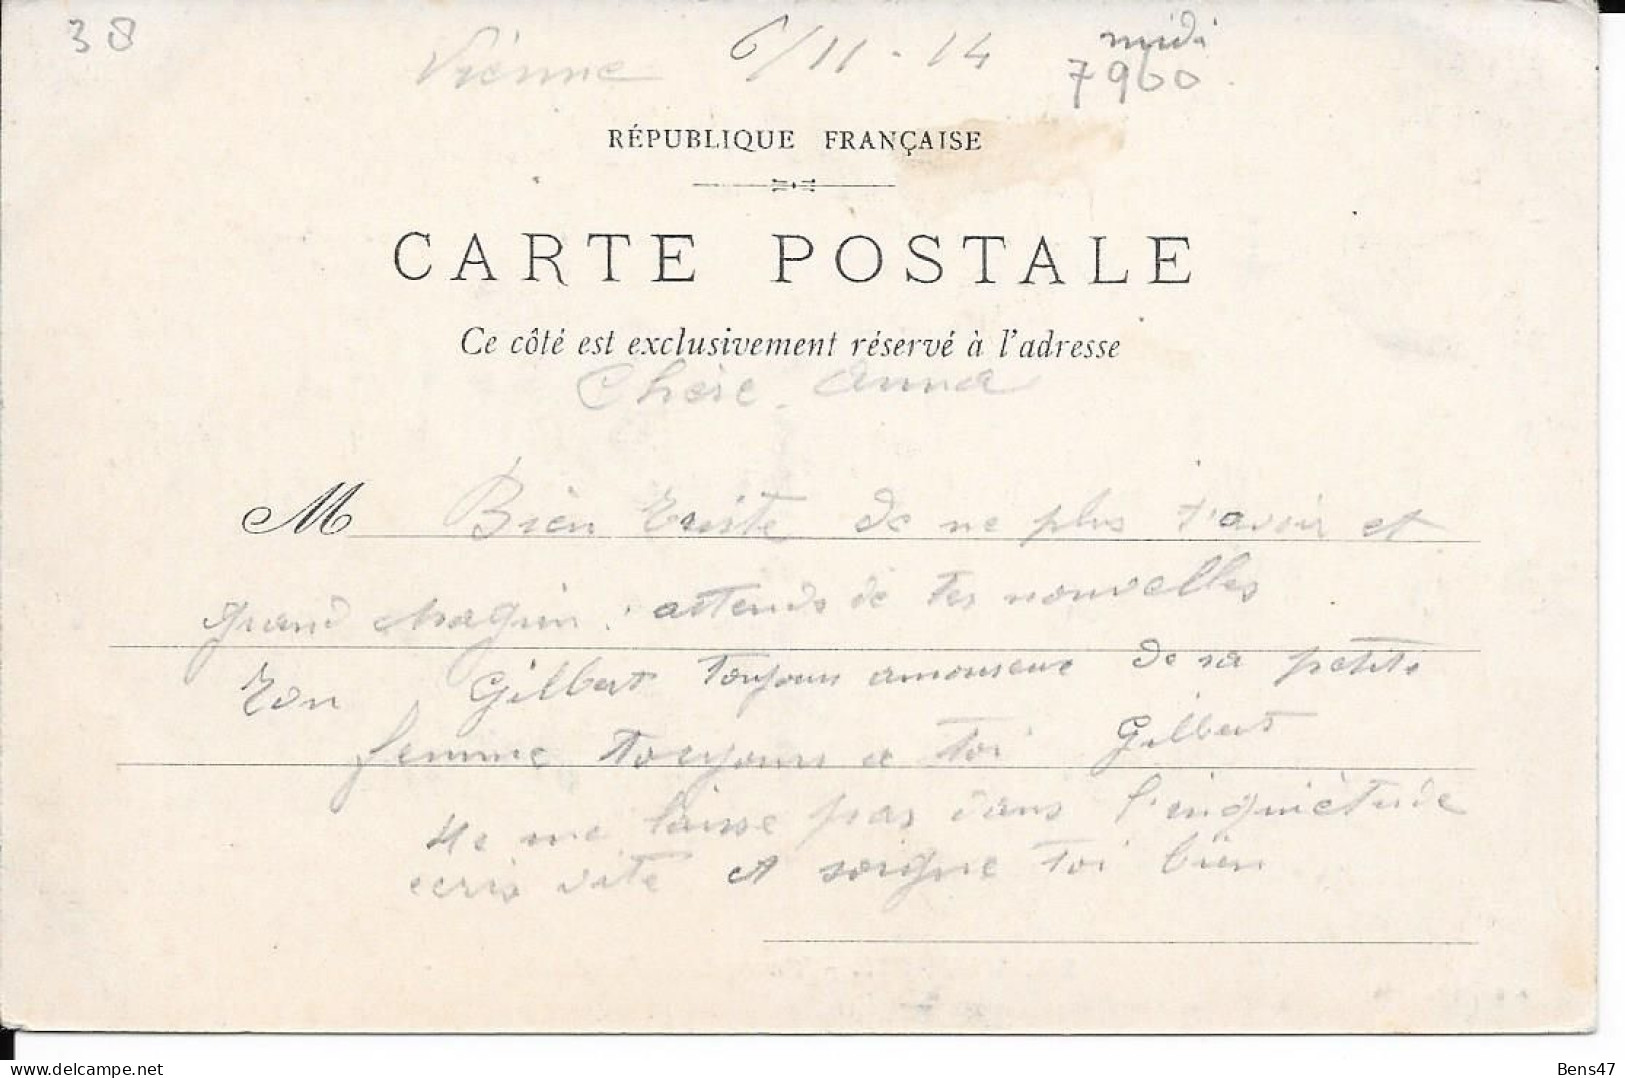 38
Vienne 6/11-14 midi
7960
RÉPUBLIQUE FRANÇAISE
CARTE POSTALE
Ce côté est exclusivement réservé à l'adresse
Chère Anna
M Bien triste de ne plus t'avoir et
grand chagrin. attends de tes nouvelles
Ton Gilbert toujours amoureux de sa petite
femme toujours a toi Gilbert
Ne me laisse pas dans l'inquiètude
ecris vite et soigne toi bien
delcampe.net
Bens47